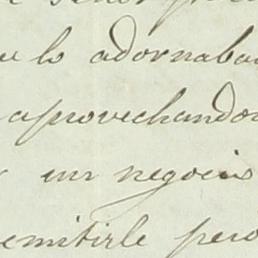 e lo adornaba
aprovechando
un negocio
emitirle pero